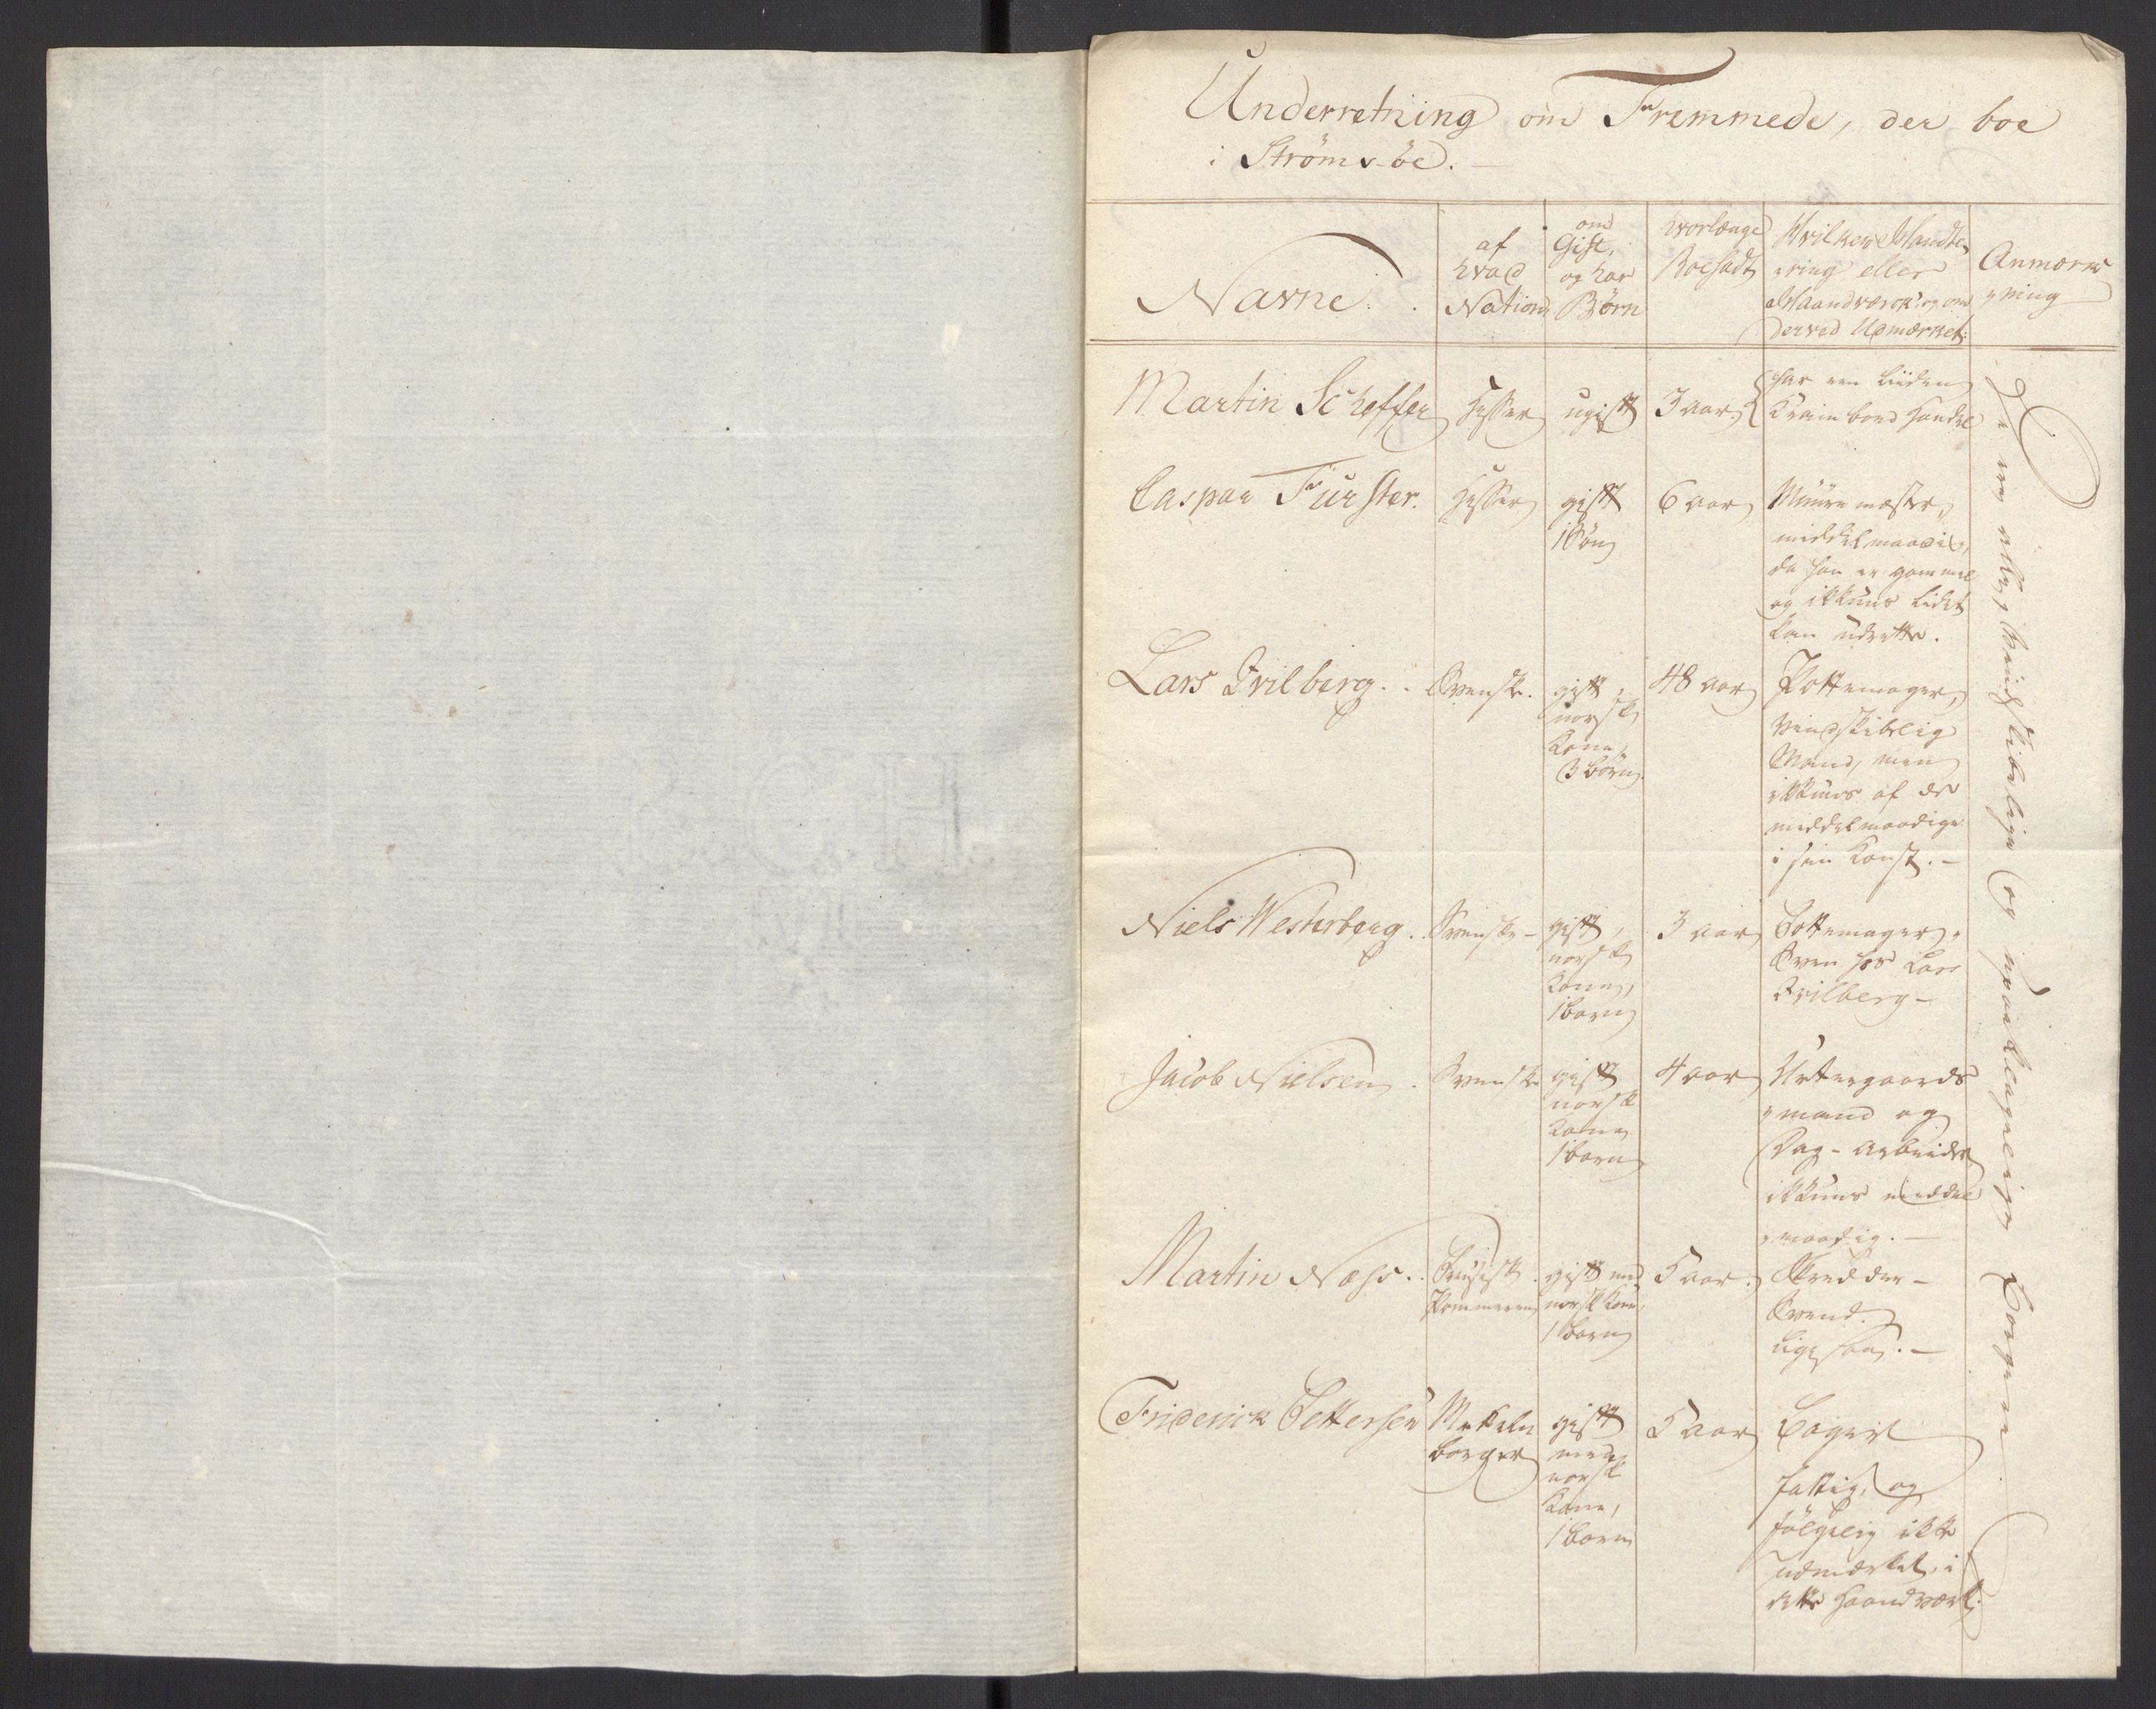 Underretning om Fremmede, der boe
i Strøms-öe. —
Navne.
af
hvad
Nation
om
Gift,
og har
Børn
hvorlænge
Boesadt
Hvilken Handte
ring eller
Haandværck og om
derved Udmærket.
Anmærk
ning
Martin Scheffer
Hesser
ugift
3 aar
har een liiden
Krambood Handel
Caspar Furster.
Hesser
gift
1 Søn
6 aar
Muurmester,
middelmaadig,
da han er gammel
og ikkuns lidet
kan udrette.
Lars Qvilberg.
Svensk.
gift,
norsk
Kone,
3 börn
48 aar
Pottemager,
vindskibelig
Mand, men
ikkuns af de
middelmaadige
i sin Konst. —
Niels Westerberg.
Svensk -
gift,
norsk
Kone,
1 barn
3 aar
Pottemager-
Sven hos Lars
Qvilberg -
Jacob Nielsen.
Svensk
gift
norsk
Kone
1 barn
4 aar
Urtegaards
mand og
Dag-arbeider
ikkuns middel
maadig. —
Martin Næss.
Preusisk
Pommeren
gift med
norsk Kone,
1 barn
5 aar.
Skredder-
Svend.
ligesaa. —
Friderick Pettersen
Mekeln
borger
gift
med
norsk
Kone,
1 barn
5 aar
Bager
fattig, og
følgelig ikke
udmærket i
dette Haandværk.
De ere alle, vindskibelige og upaaklagelige Borgere.